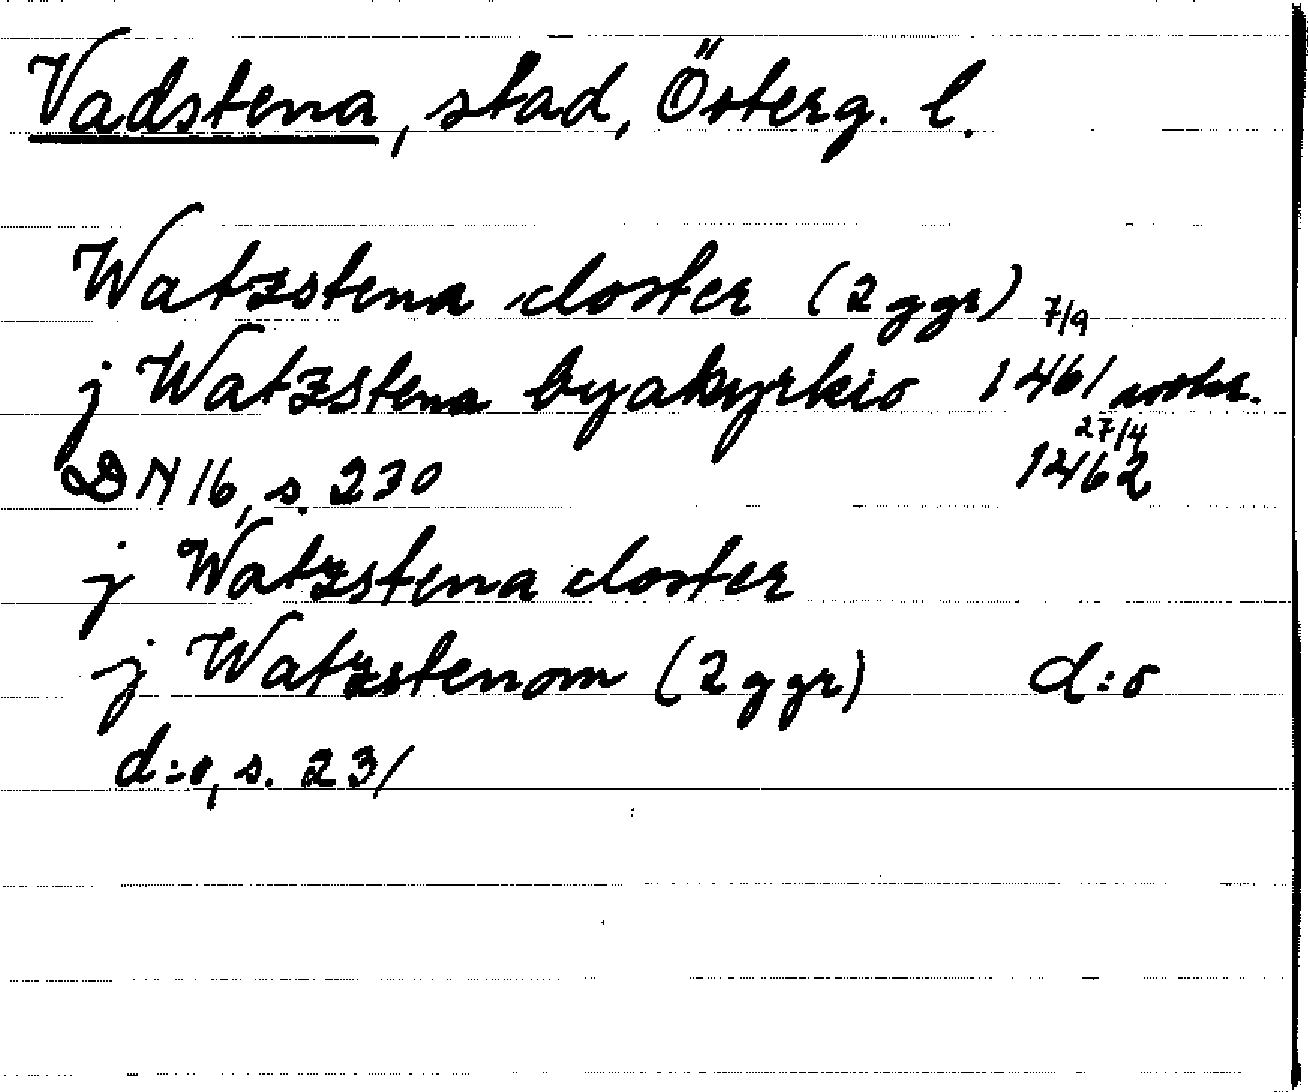 Vadstena, stad, Österg. l.
Watzstena closter (2 ggr) 7/9
j Watzstena byakyrkio 1461
DN 16, s. 230 27/4 1462
j Watzstena closter
j Watzstenom (2 ggr) d:o
d:o, s. 231